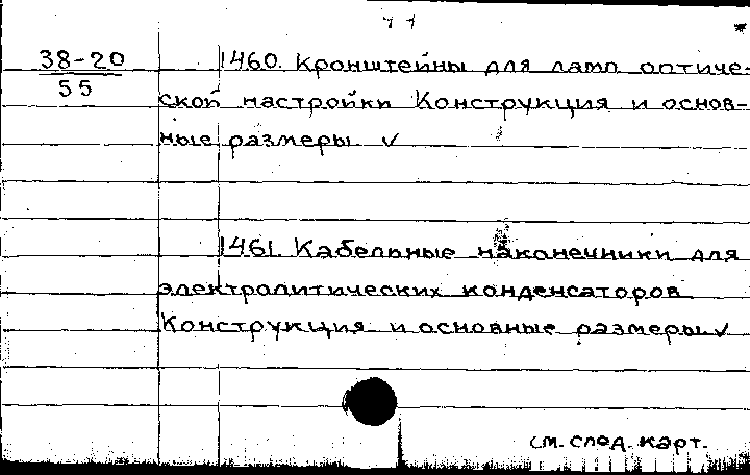 38-20
55
1460. Кронштейны для ламп оптиче-
ской настройки Конструкция и основ-
ные размеры ✓
1461. Кабельные наконечники для
электролитических конденсаторов
Конструкция и основные размеры ✓
см. след. карт.